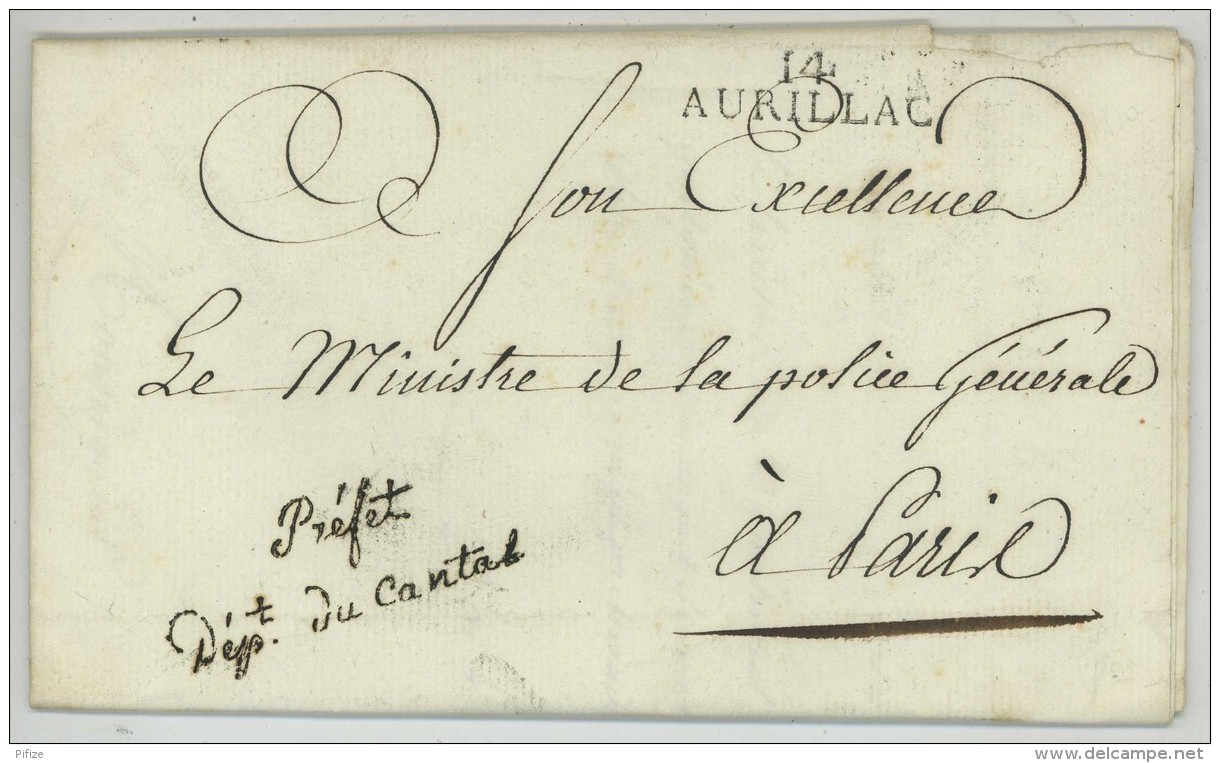 14
AURILLAC
A Son Excellence
Le Ministre de la police Générale
à Paris
Préfet
Dépt. du Cantal
Pifize
www.delcampe.net